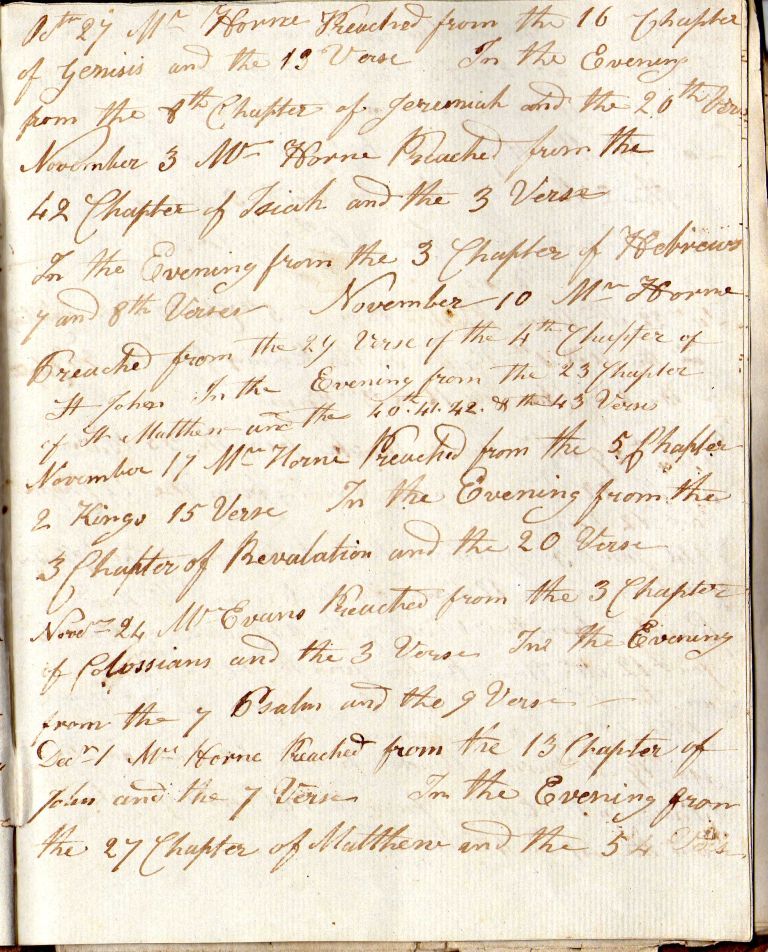 Octr 27 Mr Horne Preached from the 16 Chapter
of Genisis and the 13 Verse In the Evening
from the 8th Chapter of Jeremiah and the 20th Vers
November 3 Mr Horne Preached from the
42 Chapter of Isiah and the 3 Verse
In the Evening from the 3 Chapter of Hebrews
7 and 8th Verses November 10 Mr Horne
Preached from the 29 Verse of the 4th Chapter of
St John In the Evening from the 23 Chapter
of St Matthew and the 40th.41.42. & the 43 Verse
November 17 Mr Horne Preached from the 5 Chapter
2 Kings 15 Verse In the Evening from the
3 Chapter of Revalation and the 20 Verse
Novr 24 Mr Evans Preached from the 3 Chapter
of Colossians and the 3 Verse In the Evening
from the 7 Psalm and the 9 Verse
Decr 1 Mr Horne Preached from the 13 Chapter of
John and the 7 Verse In the Evening from
the 27 Chapter of Matthew and the 54